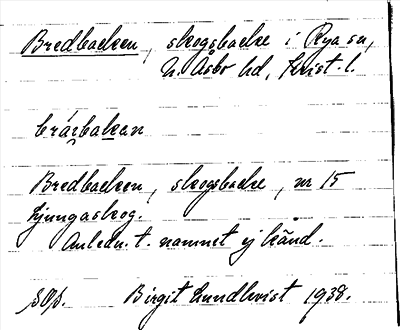 Bredbacken, skogsbacke i Rya sn,
N. Åsbo hd, Krist. l.
Bredbacken, skogsbacke, nr 15
Ljungaskog.
Anledn. t. namnet ej känd.
Birgit Lundkvist 1938.